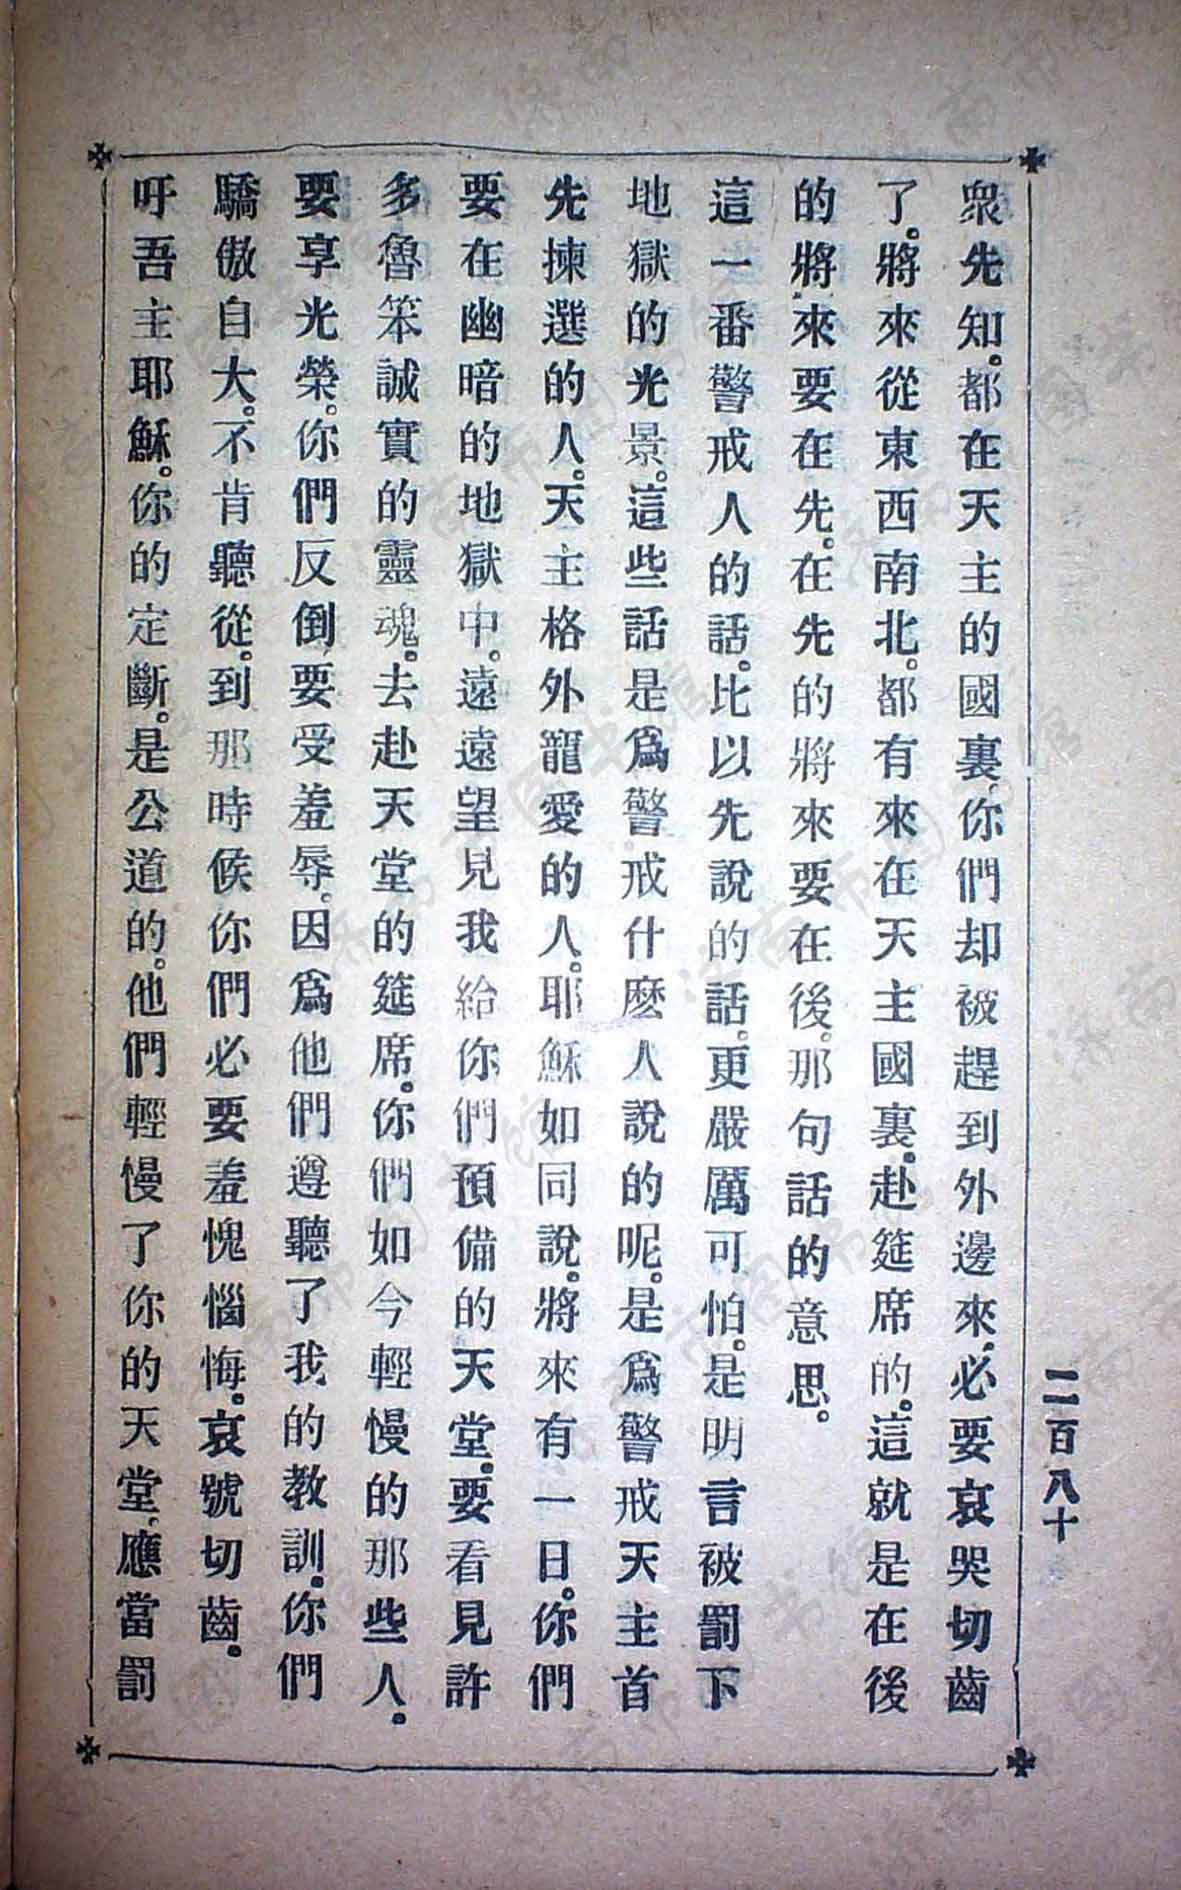 衆先知。都在天主的國裏、你們却被趕到外邊來、必要哀哭切齒
了。將來從東西南北。都有來在天主國裏。赴筵席的。這就是在後
的將來要在先。在先的將來要在後。那句話的意思。
這一番警戒人的話。比以先說的話。更嚴厲可怕。是明言被罰下
地獄的光景。這些話是爲警戒什麽人說的呢。是爲警戒天主首
先揀選的人。天主格外寵愛的人。耶穌如同說。將來有一日。你們
要在幽暗的地獄中。遠遠望見我給你們預備的天堂。要看見許
多魯笨誠實的靈魂。去赴天堂的筵席。你們如今輕慢的那些人。
要享光榮。你們反倒要受羞辱。因爲他們遵聽了我的教訓。你們
驕傲自大。不肯聽從。到那時候你們必要羞愧惱悔。哀號切齒。
吁吾主耶穌。你的定斷。是公道的。他們輕慢了你的天堂、應當罰
二百八十